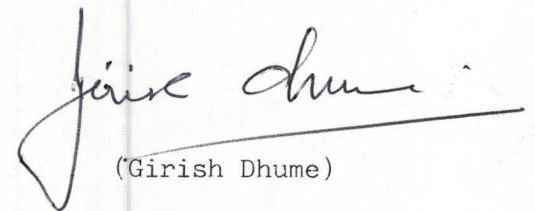 Girish Dhume
(Girish Dhume)